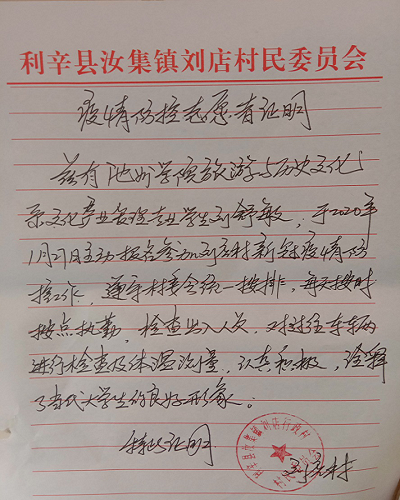 利辛县汝集镇刘店村民委员会
疫情防控志愿者证明
兹有池州学院旅游与历史文化
系文化产业管理专业学生刘舒敏，于2020年
1月27日主动报名参加刘店村新冠疫情防
控工作，遵守村委会统一安排，每天按时
按点执勤，检查出入人员，对过往车辆
进行检查及体温测量，认真积极，诠释
了当代大学生的良好形象。
特此证明
刘店村